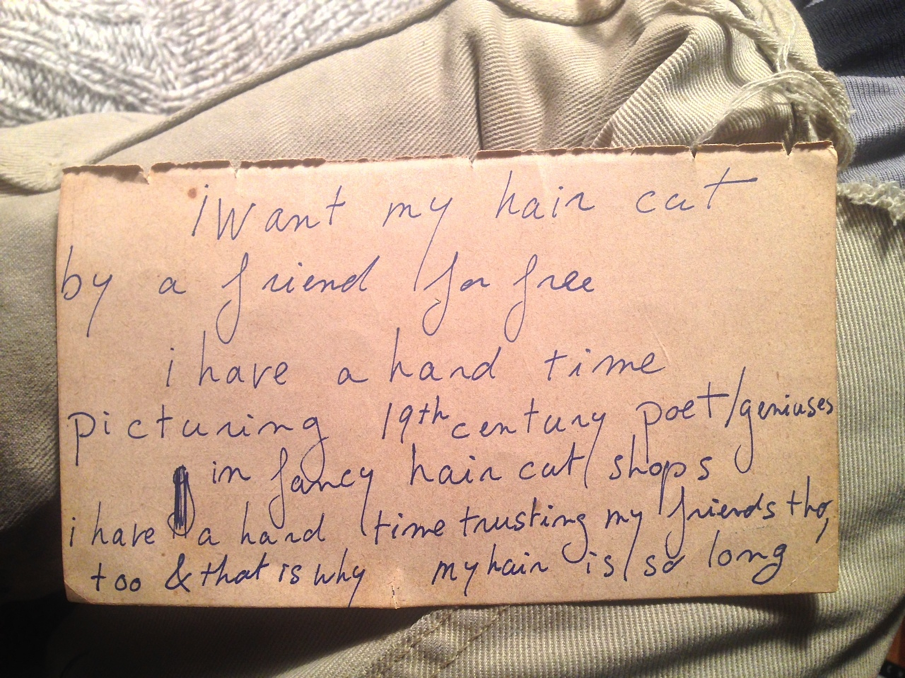 i want my hair cut
by a friend for free
i have a hard time
picturing 19th century poet/geniuses
in fancy hair cut shops
i have a hard time trusting my friends tho,
too & that is why my hair is so long